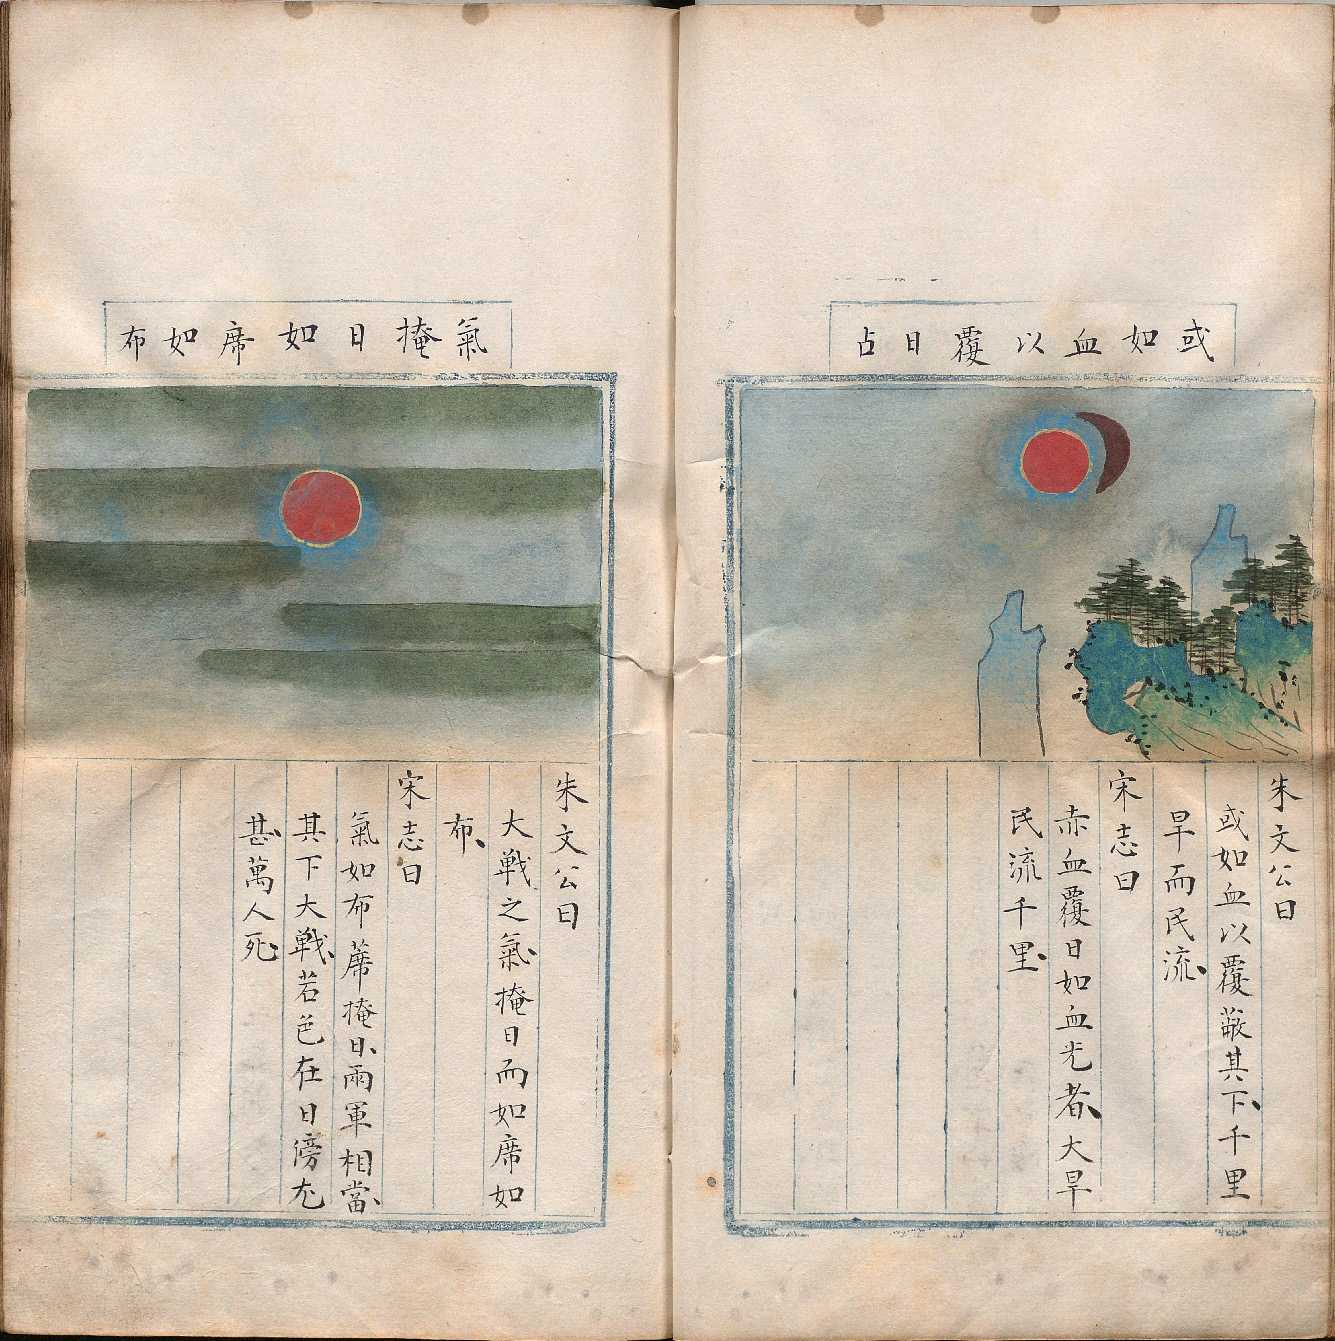 或如血以覆日占
朱文公曰
或如血以覆蔽其下、千里
旱而民流、
宋志曰
赤血覆日如血光者、大旱
民流千里、
氣掩日如席如布
朱文公曰
大戰之氣、掩日而如席如
布、
宋志曰
氣如布蓆掩日、兩軍相當、
其下大戰、若色在日傍尤
甚、萬人死、